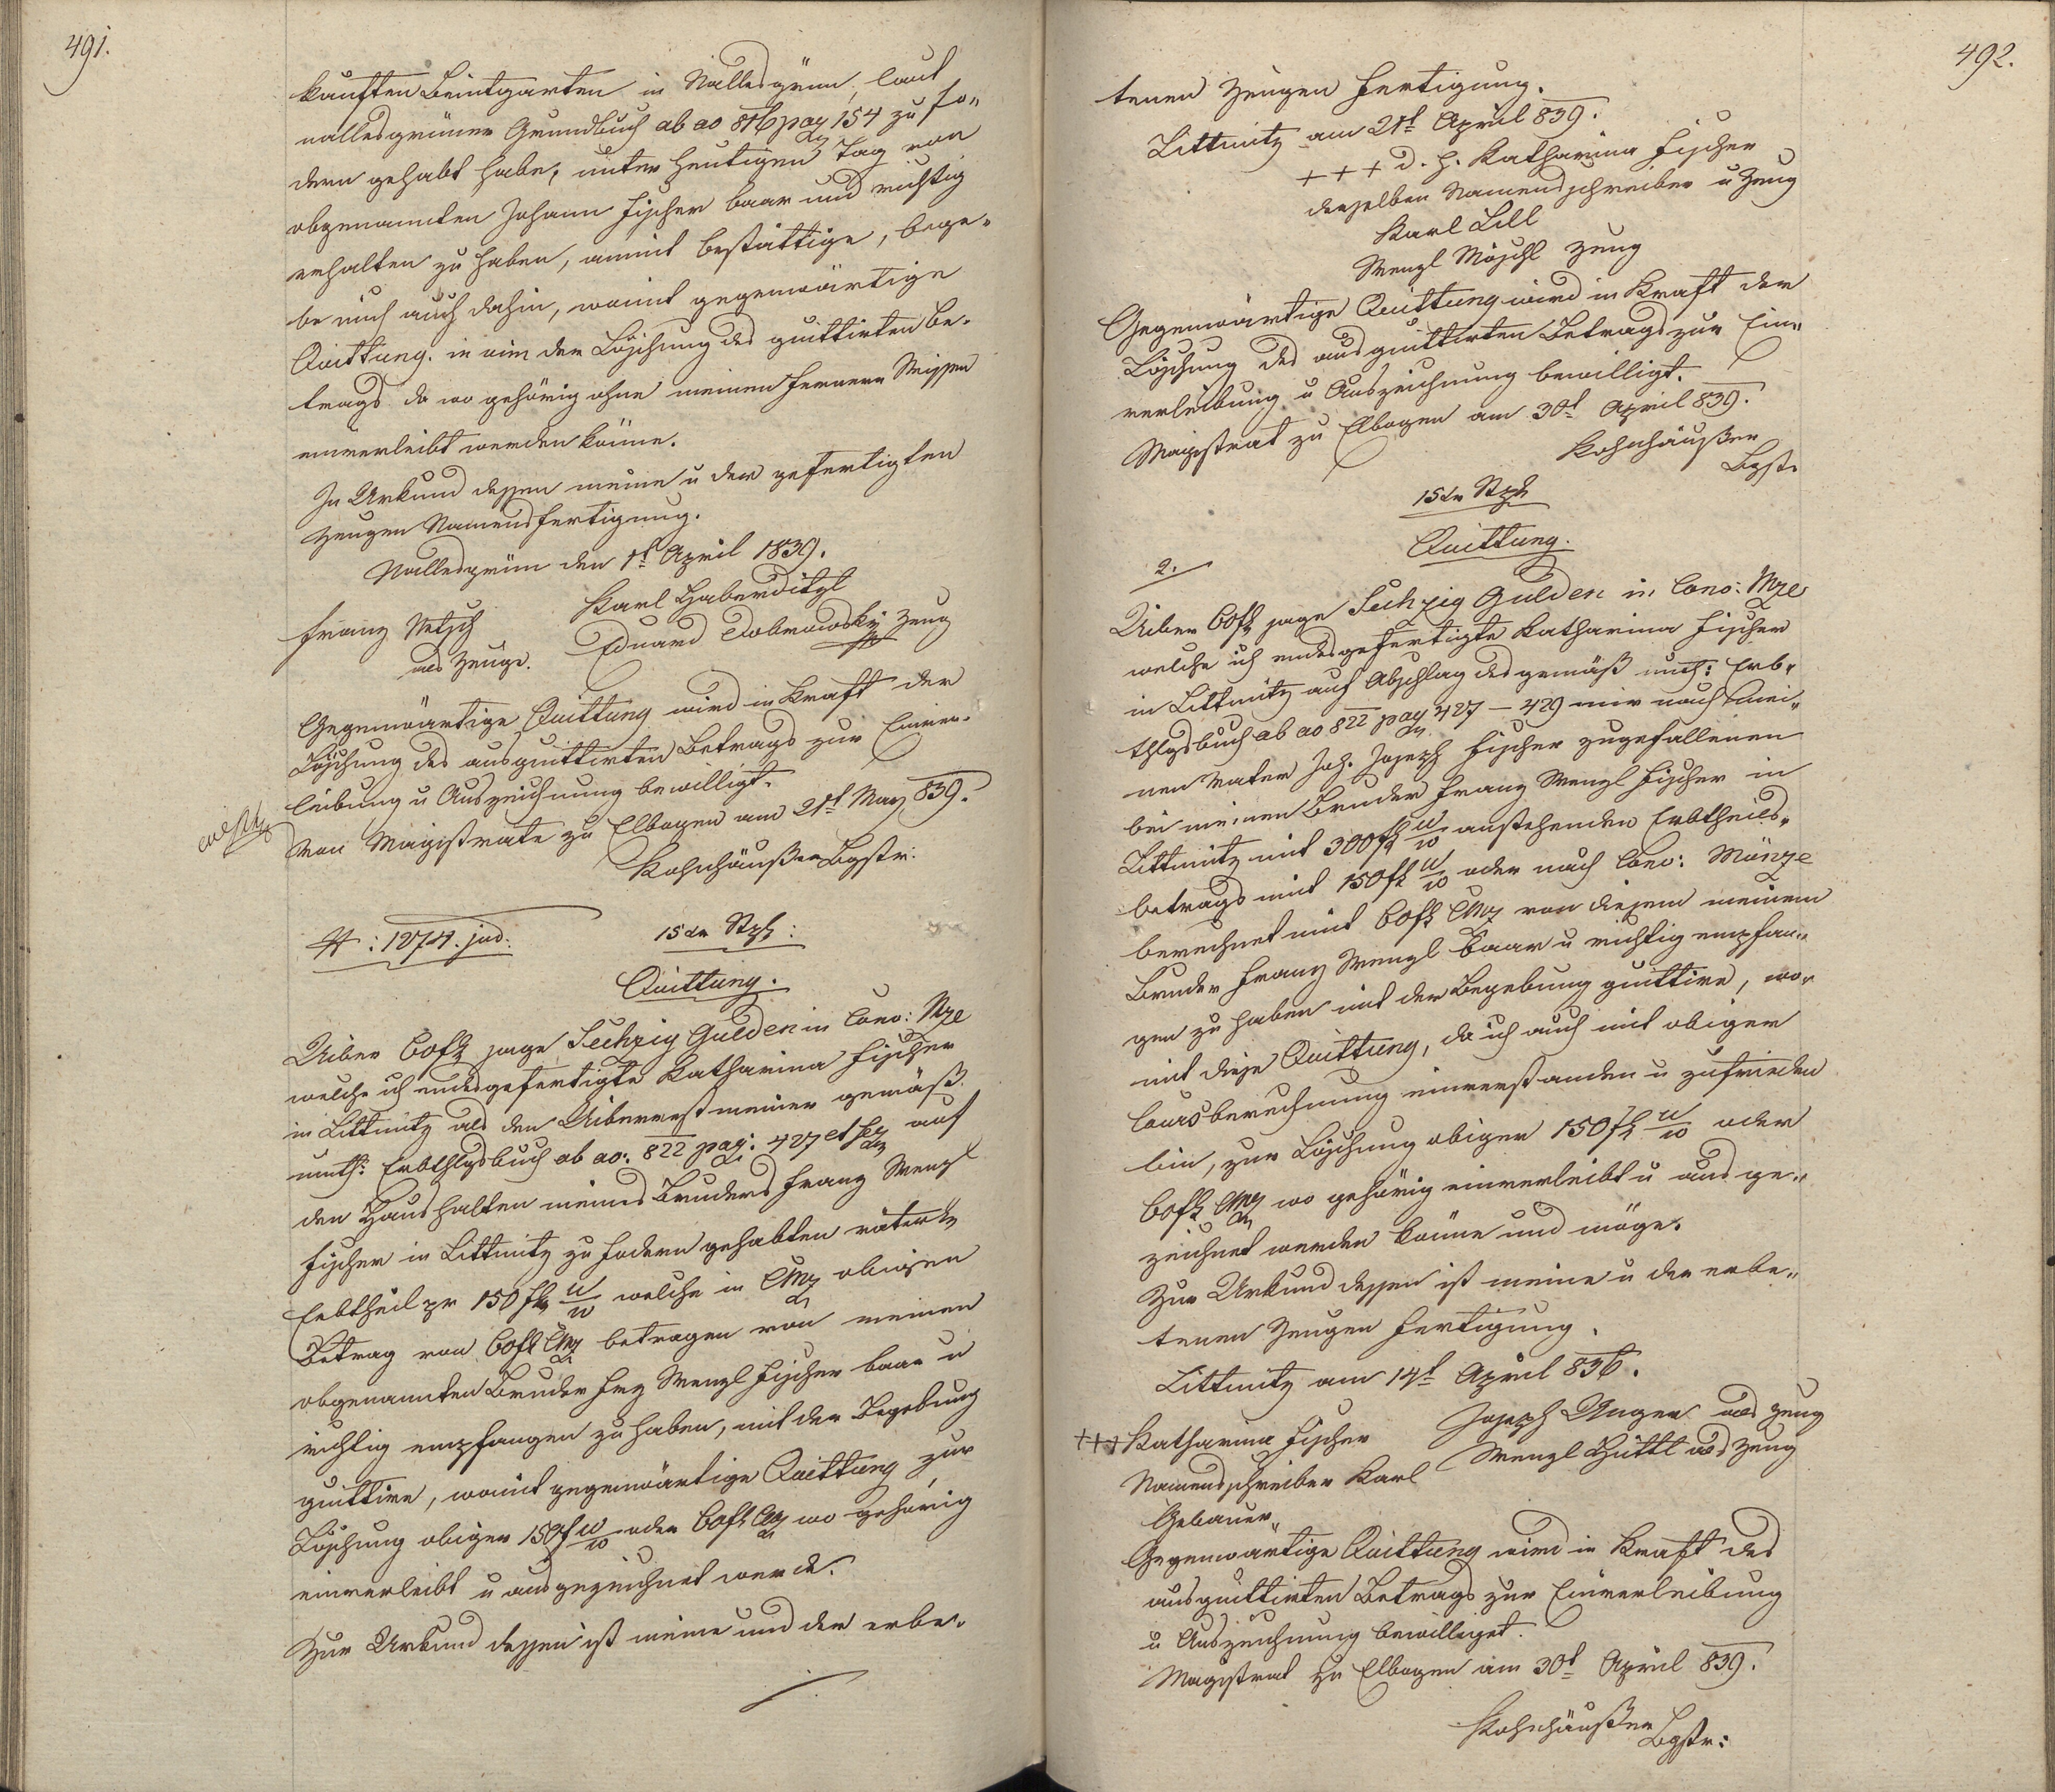 491.
kauften Beintgarten in Nallesgrün, laut
nallesgrüner Grundbuch ab ao 816 pag 154 zu fo-
dern gehabt habe, unter heutigen Tag von
obgenannten Johann Fischer baar und richtig
erhalten zu haben, anmit bestättige, bege-
be mich auch dahin, womit gegenwärtige
Quittung in
der Löschung des quittirten Be-
trags da wo gehörig ohne meinen fernern Wissen
einverleibt werden könne.
In Urkund dessen meine u der gefertigten
Zeugen Namensfertigung.
Nallesgrün den 1t April 1839.
Karl Haberditzl
Franz Netsch
als Zeuge.
Eduard Dobrowsky Zeug
Gegenwärtige Quittung wird in Kraft der
Löschung des ausquittirten Betrags zur Einver-
leibung u Auszeichnung bewilligt.
Von Magistrate zu Elbogen am 21t May 839.
Kohnhäußer Bgstr:
N: 1274. jud:
15 kr Stpl:
Quittung.
Uiber 60 fl sage Sechzig Gulden in Conv: Mze
welche ich endesgefertigte Katharina Fischer
in Littmitz als den Uiberrest meiner gemäß
unth: Erbthlgsbuch ab ao: 822 pag: 427 et seq auf
den Haus halten meines Bruders Franz Wenzl
Fischer in Littmitz zu fodern gehabten väterl.
Erbtheil pr 150 fl W/W welche in CMz obigen
Betrag von 60 fl CMz betragen von meinen
obgenannten Bruder Frz Wenzl Fischer baar u
richtig empfangen zu haben, mit der Begebung
quittire, womit gegenwärtige Quittung zur
Löschung obiger 150 f W/W oder 60 fl CMz wo gehörig
einverleibt u ausgezeichnet werde.
Zur Urkund dessen ist meine und der erbe-
492.
tenen Zeugen Fertigung.
Littmitz am 21t April 839.
+++ d. h. Katharina Fischer
derselben Namensschreiber u Zeug
Karl Lill
Wenzl Möschl Zeug
Gegenwärtige Quittung wird in Kraft der
Löschung des ausquittirten Betrags zur Ein-
verleibung u Auszeichnung bewilligt.
Magistrat zu Elbogen am 30t April 839.
Kohnhäußer
Bgstr
15 kr Stpl
Quittung.
2.
Uiber 60 fl sage Sechzig Gulden in Conv: Mze
welche ich endesgefertigte Katharina Fischer
in Littmitz auf Abschlag des gemäß unth: Erb-
thlgsbuch ab ao 822 pag 427 – 429 mir nach mei-
nen Vater Joh. Joseph Fischer zugefallenen
bei meinen Bruder Franz Wenzl Fischer in
Littmitz mit 300 fl W/W anstehenden Erbtheils-
betrags mit 150 fl W/W oder nach Conv: Münze
berechnet mit 60 fl CMz von diesem meinem
Bruder Franz Wenzl baar u richtig empfan-
gen zu haben mit der Begebung quittire, wo-
mit diese Quittung, da ich auch mit obiger
Coursberechnung einverstanden u zufrieden
bin, zur Löschung obiger 150 fl W/W oder
60 fl CMz wo gehörig einverleibt u aus ge-
zeichnet werden könne und möge.
Zur Urkund dessen ist meine u der erbe-
tenen Zeugen Fertigung.
Littmitz am 14t April 836.
+++ Katharina Fischer
Namensschreiber Karl
Gebauer
Joseph Unger als Zeug
Wenzl Hüttl als Zeug
Gegenwärtige Quittung wird in Kraft des
ausquittirten Betrags zur Einverleibung
u Auszeichnung bewilliget.
Magistrat zu Elbogen am 30t April 839.
Kohnhäußer
Bgstr: